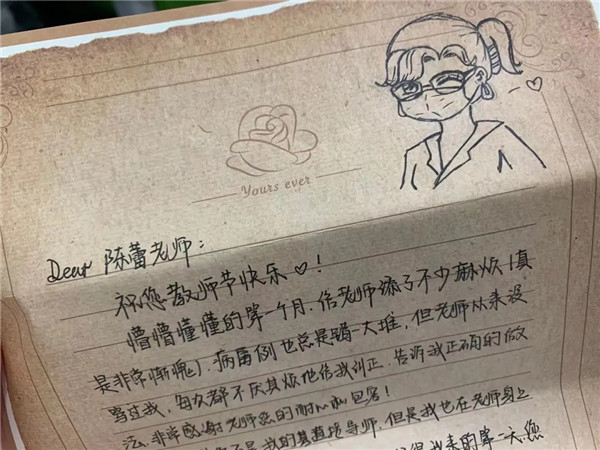 Yours ever
Dear 陈蕾老师:
祝您教师节快乐♡!
懵懵懂懂的第一个月.给老师添了不少麻烦(真
是非常惭愧).病历也总是错一大堆,但老师从来没
骂过我,每次都不厌其烦地给我纠正.告诉我正确的做
法.非常感谢老师您的耐心和包容!
不是我的直接导师.但是我也在老师身上
得我来的第一天.您